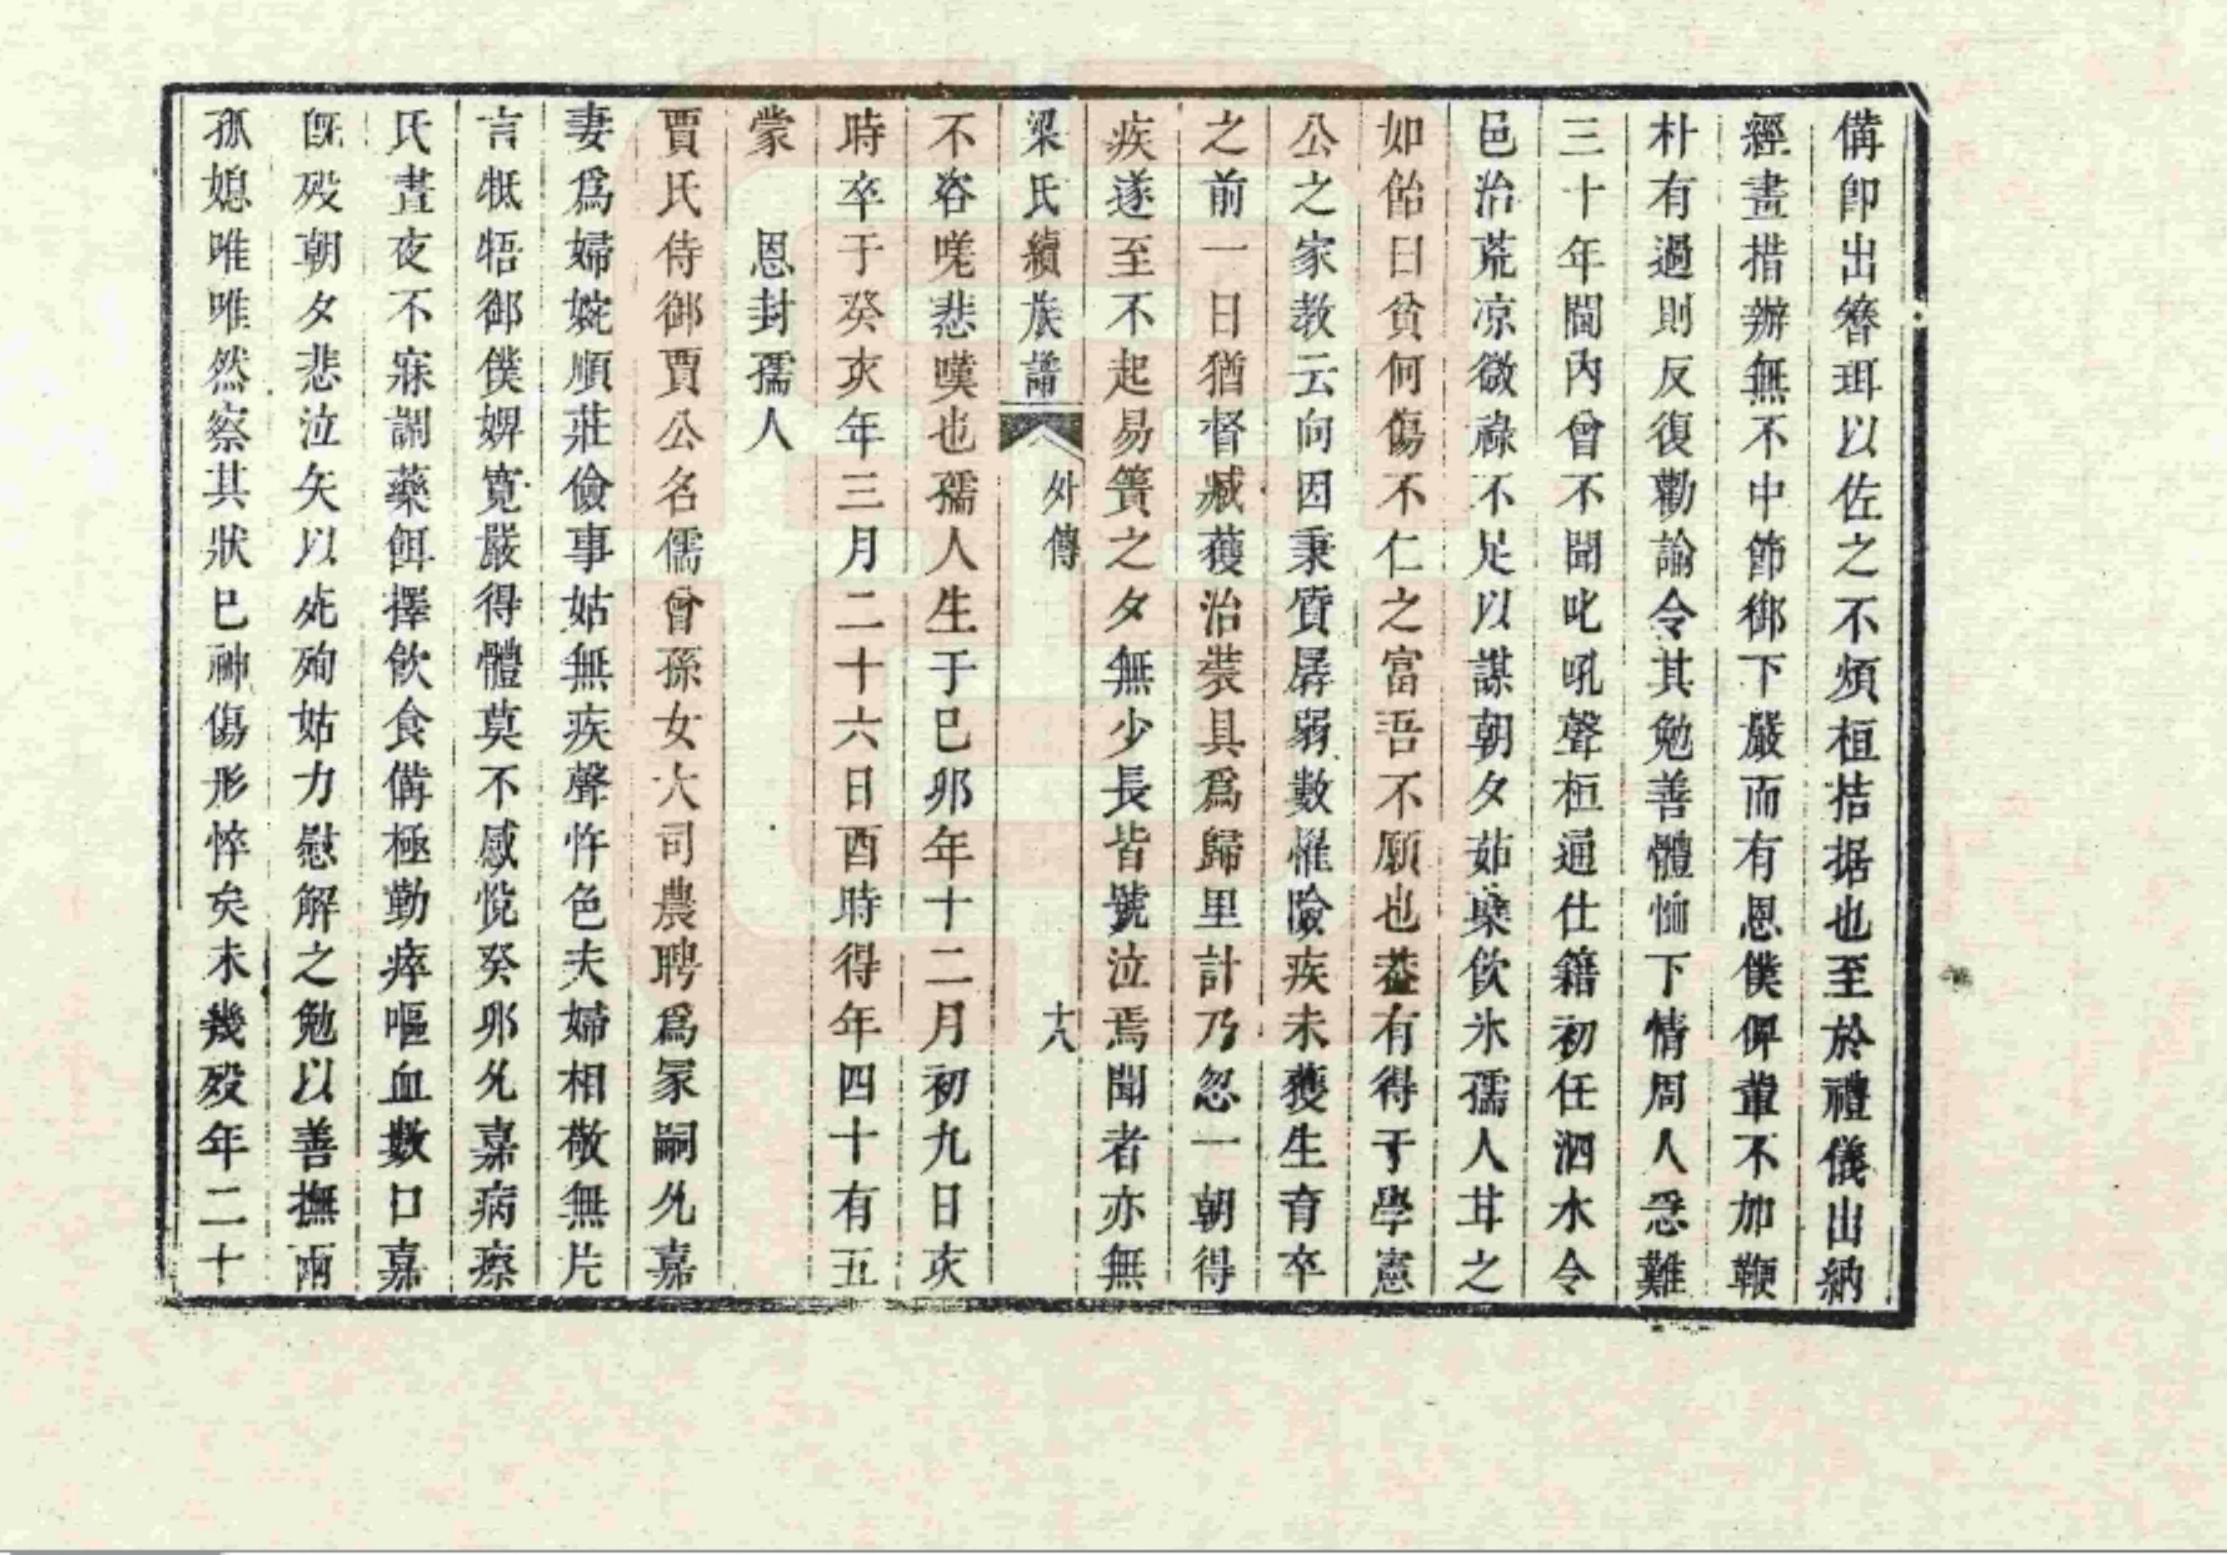 備卽出簪珥以佐之不煩桓拮据也至於禮儀出納
經畫措辦無不中節御下嚴而有恩僕俾輩不加鞭
朴有過則反復勸諭令其勉善體恤下情周人急難
三十年閫內曾不聞叱吼聲桓通仕籍初任泗水令
邑治荒凉微祿不足以謀朝夕茹蘗飲氷孺人甘之
如飴曰貧何傷不仁之富吾不願也葢有得于學憲
公之家教云向因秉質孱弱數罹險疾未獲生育卒
之前一日猶督臧獲治裝具爲歸里計乃忽一朝得
疾遂至不起易簀之夕無少長皆號泣焉聞者亦無
梁氏續族譜 外傳 十八
不咨嗟悲嘆也孺人生于巳卯年十二月初九日亥
時卒于癸亥年三月二十六日酉時得年四十有五
蒙 恩封孺人
賈氏侍御賈公名儒曾孫女大司農聘爲冢嗣允嘉
妻爲婦婉順莊儉事姑無疾聲忤色夫婦相敬無片
言牴牾御僕婢寬嚴得體莫不感悅癸卯允嘉病瘵
氏晝夜不寐調藥餌擇飲食備極勤瘁嘔血數口嘉
旣歿朝夕悲泣矢以死殉姑力慰解之勉以善撫兩
孤媳唯唯然察其狀巳神傷形悴矣未幾歿年二十